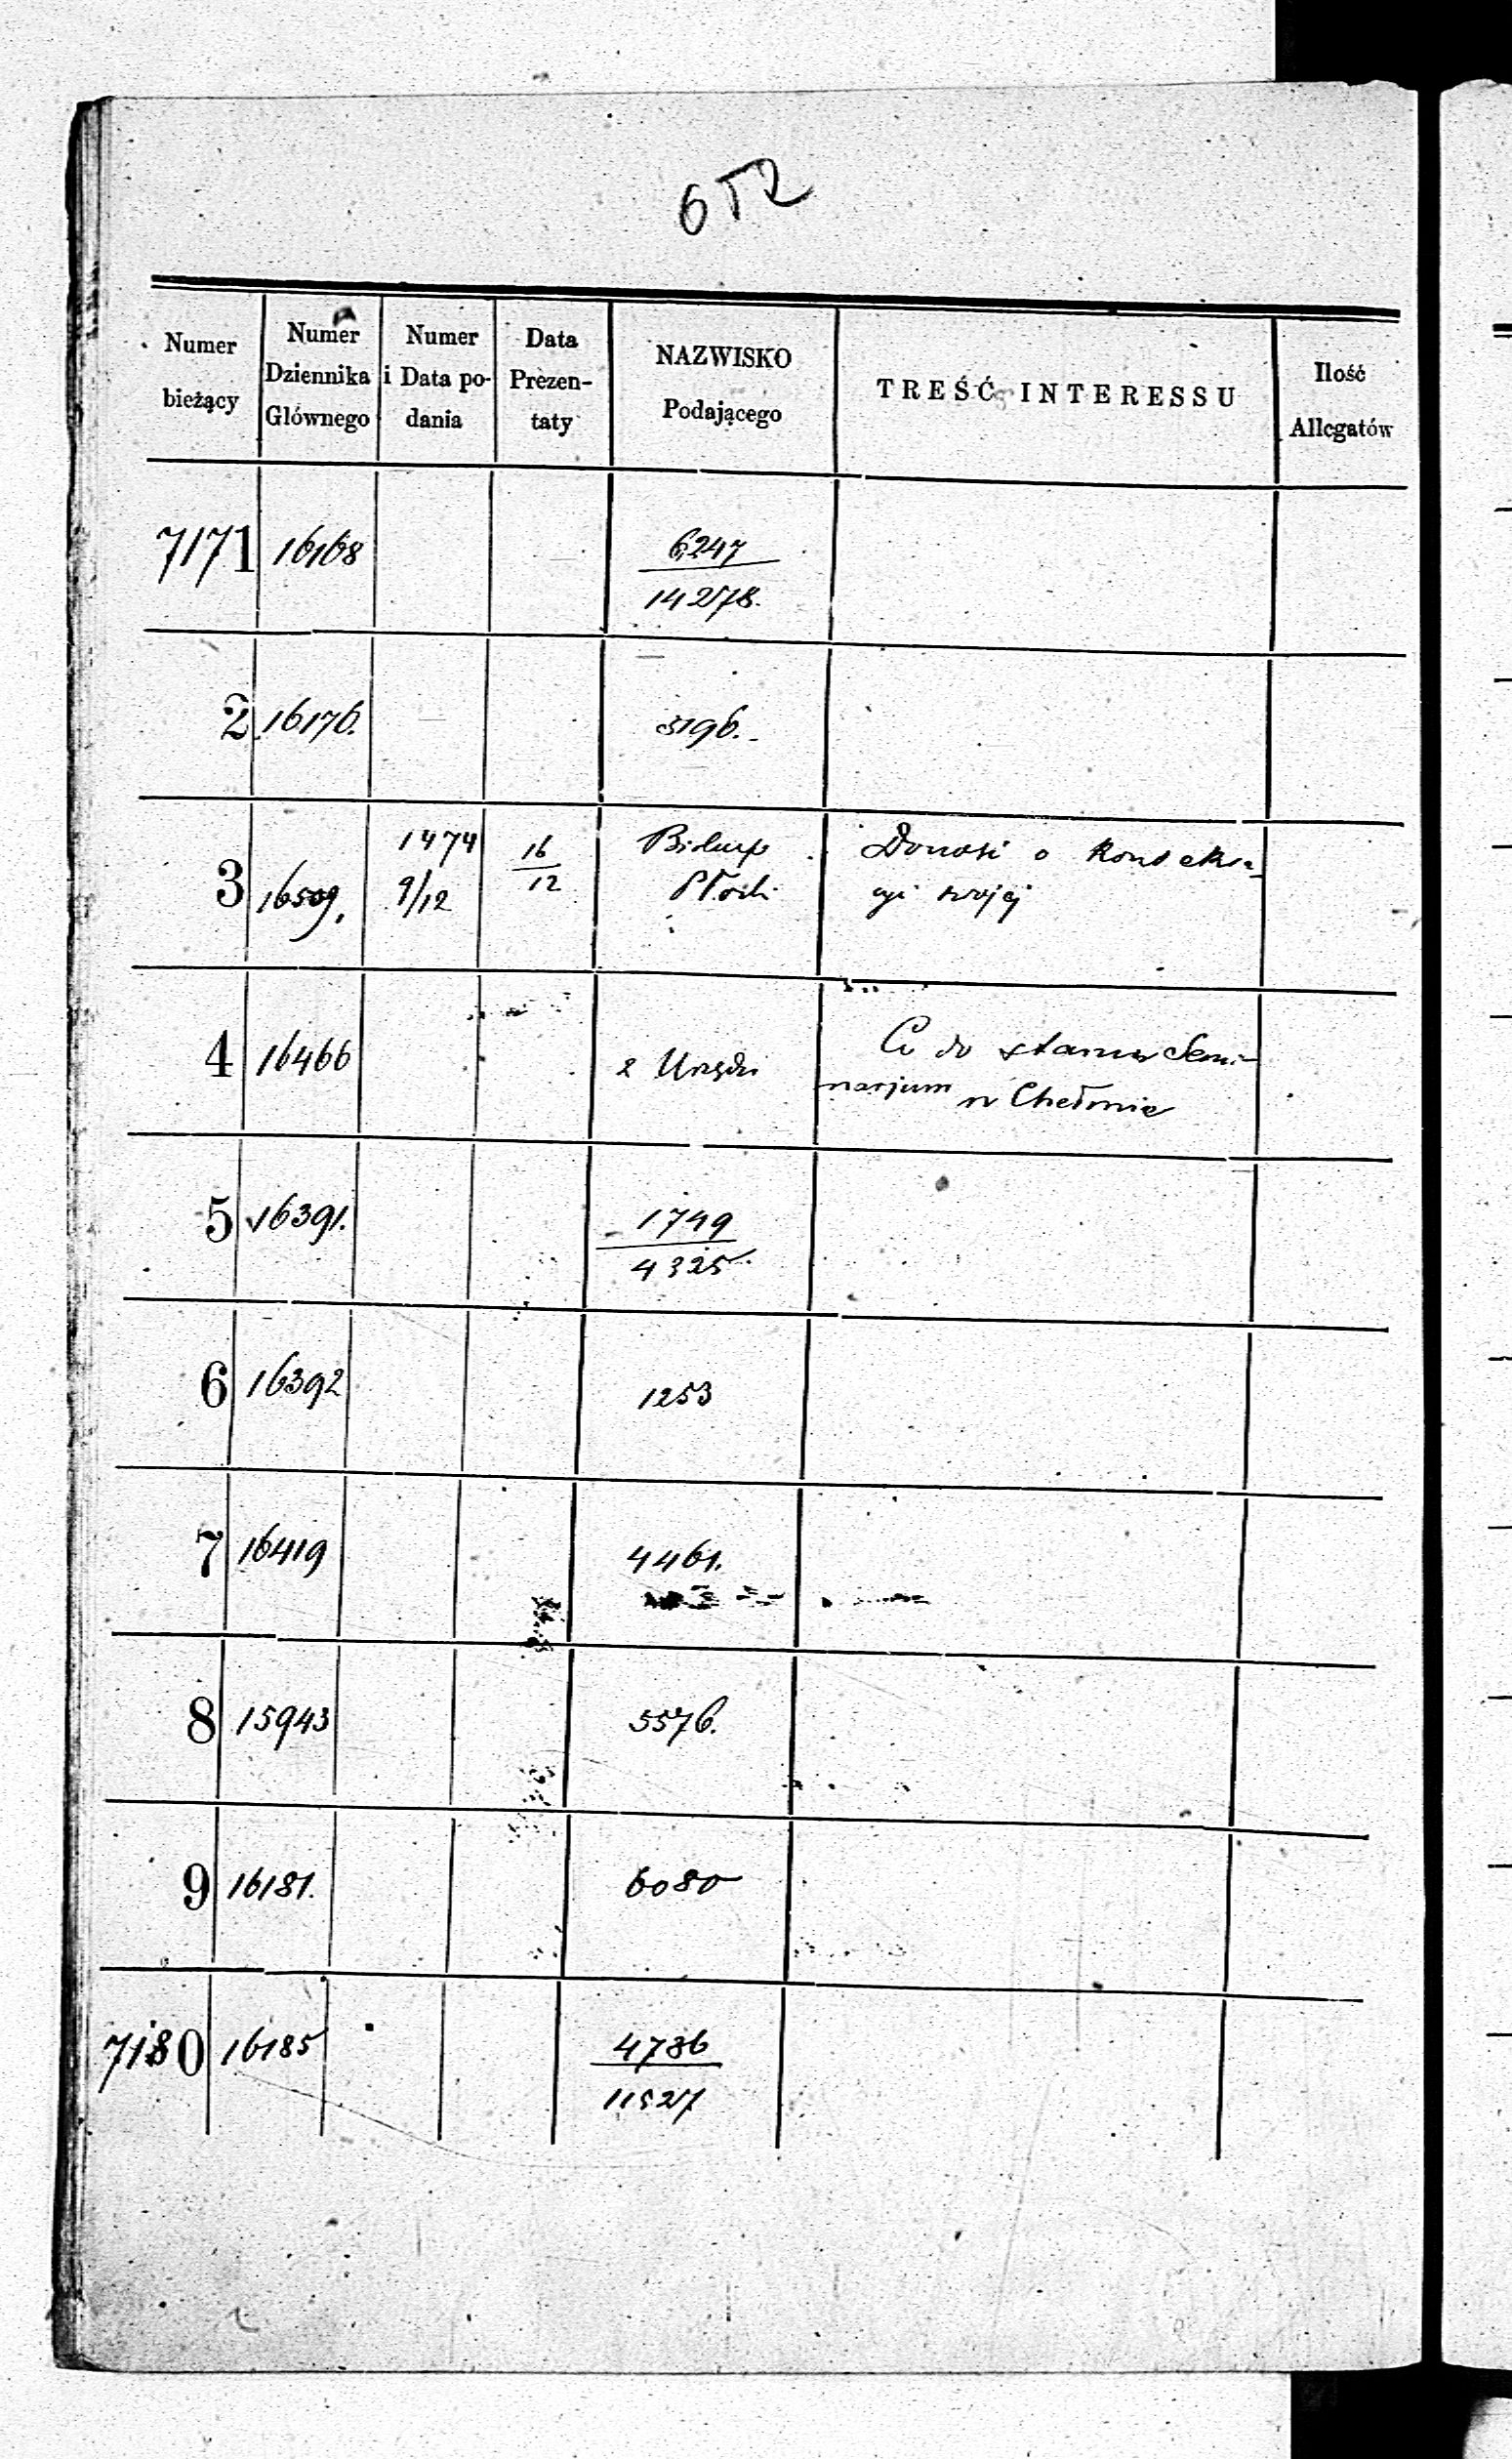 652
Numer bieżący | Numer Dziennika Głównego | Numer i Data podania | Data Prezentaty | NAZWISKO Podającego | TREŚĆ INTERESSU | Ilość Allegatów
7171 16168 6247
14278.
2 16176. 5196.
1474 16 Biskup Donosi o Konsekra
3 16509. 9/12 12 Płocki cyi swojej
4 16466 z Urzędu Co do stanu Semi-
narjum w Chełmie
5 16391. 1749
4325.
6 16392 1253
7 16419 4461.
8 15943 5576.
9 16181. 6080
7180 16185 4786
11527